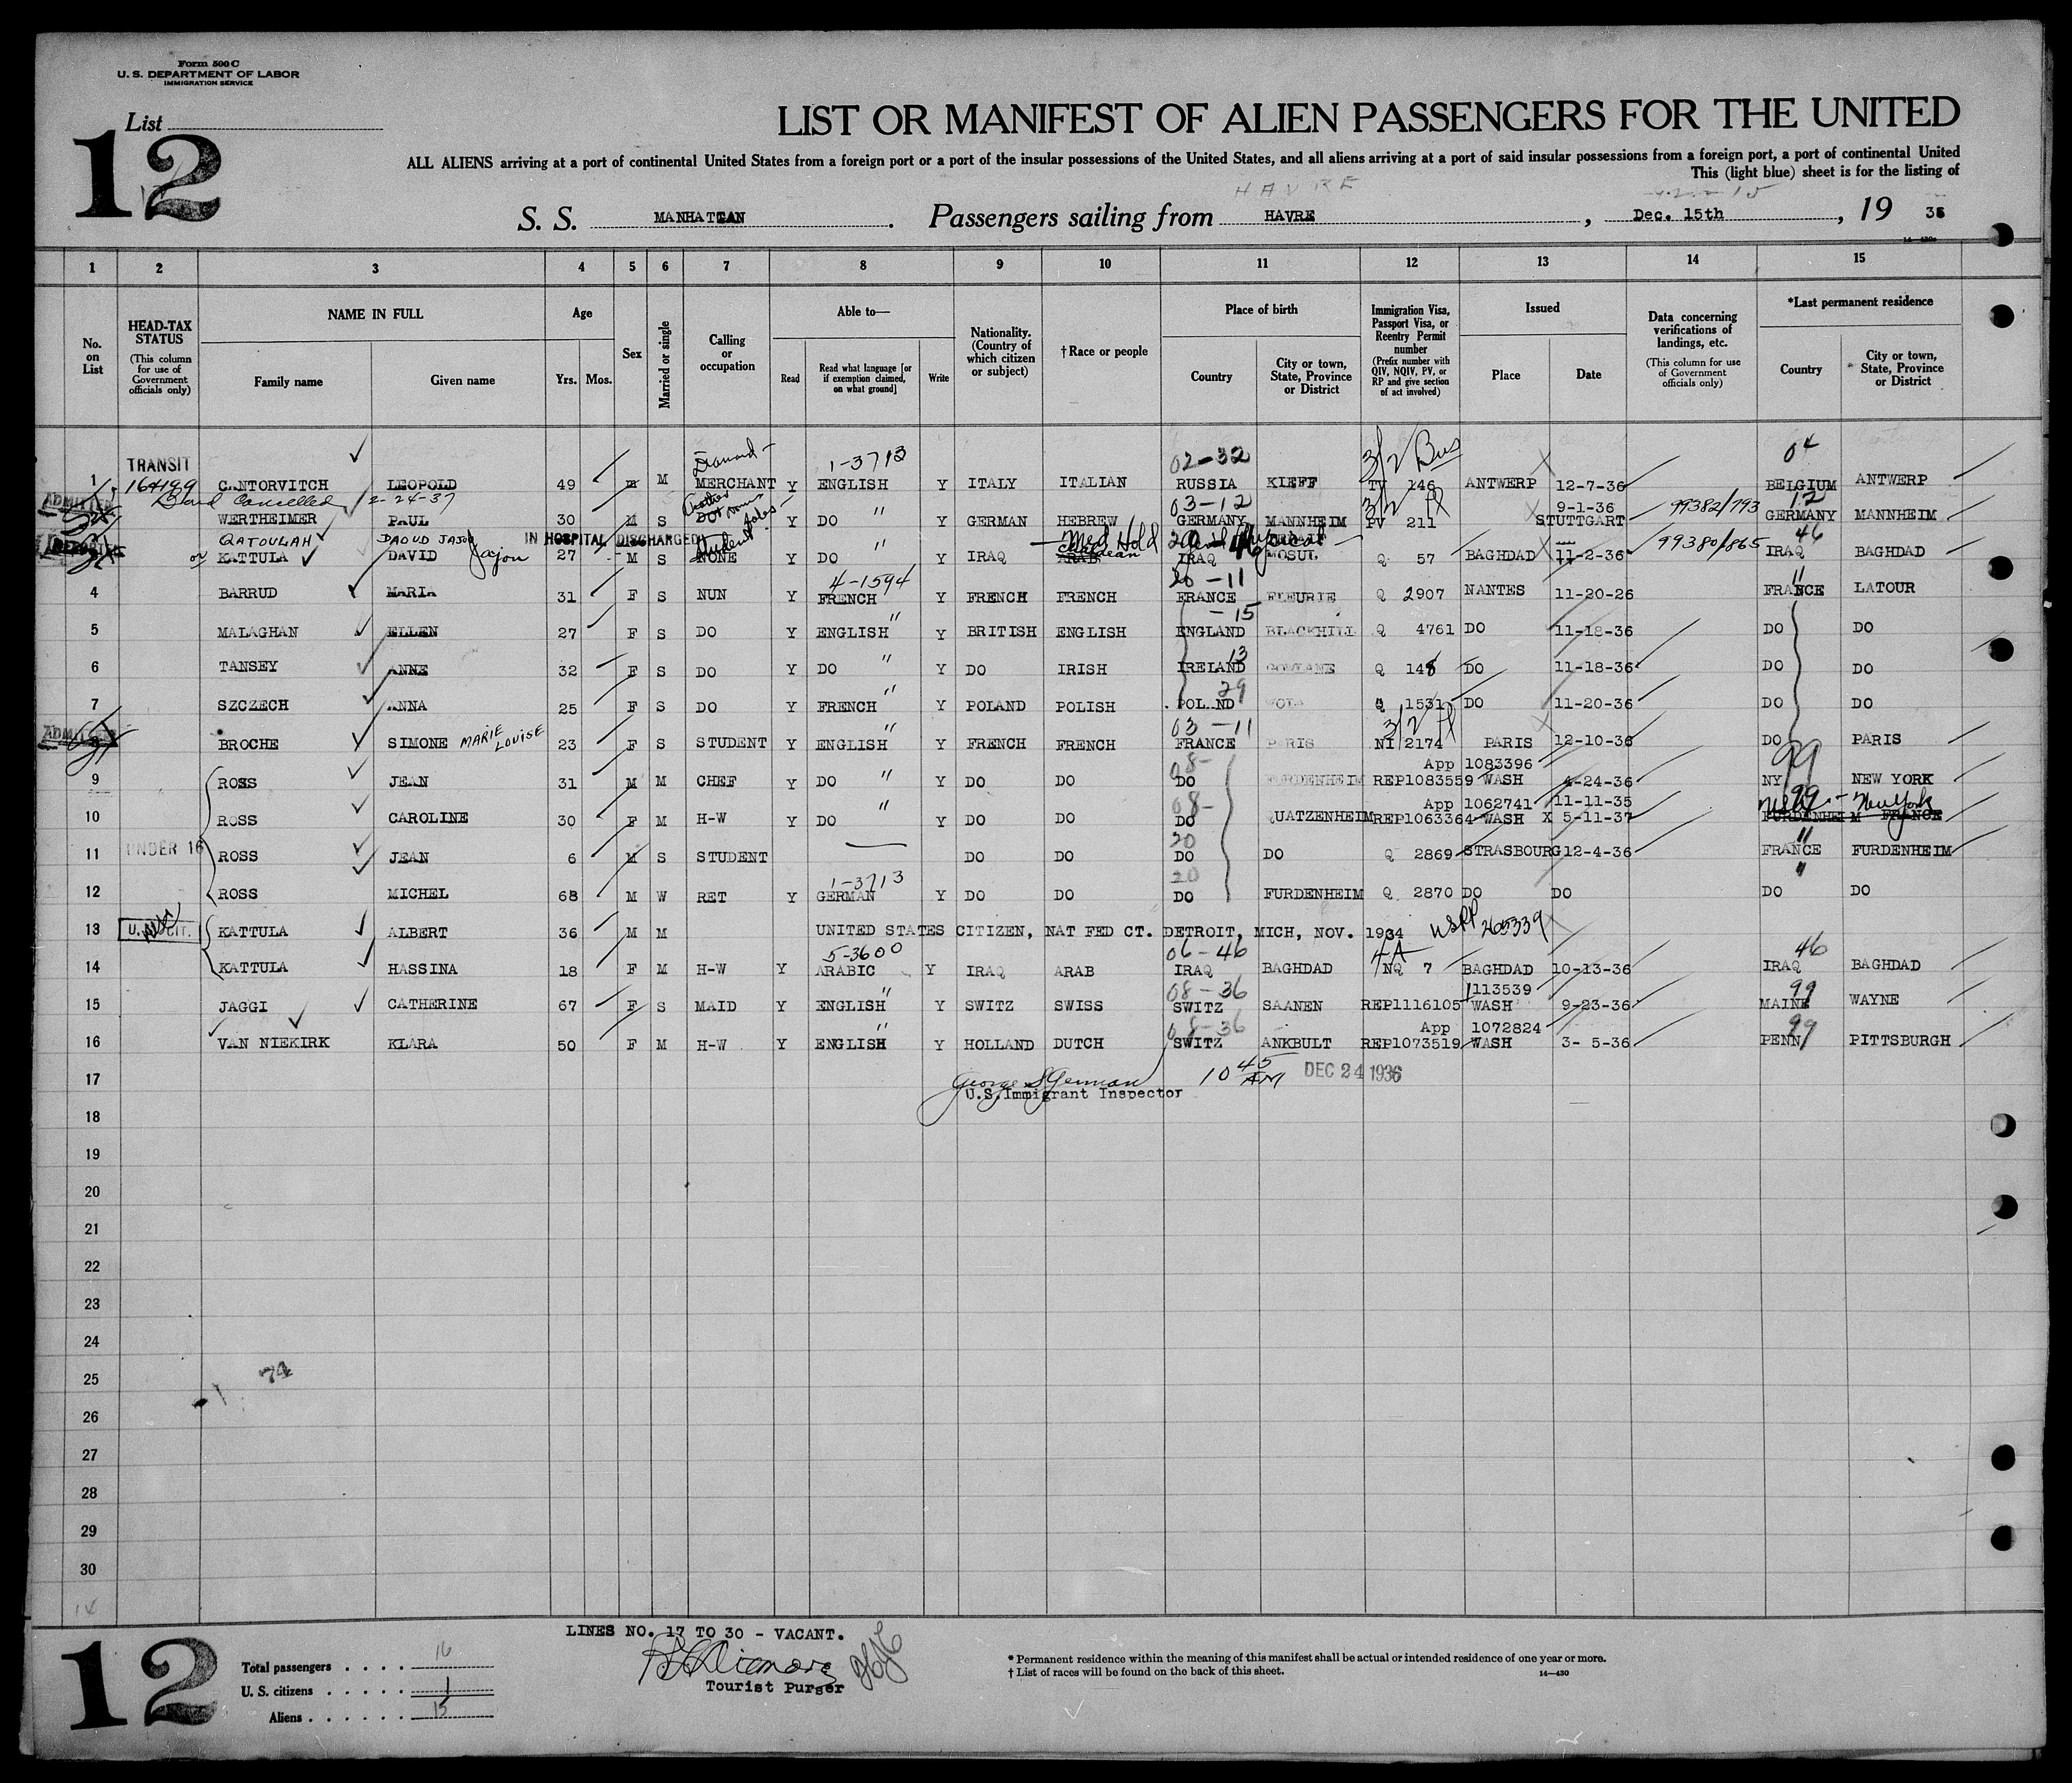 Form 500 C
U. S. DEPARTMENT OF LABOR
IMMIGRATION SERVICE
List
12
LIST OR MANIFEST OF ALIEN PASSENGERS FOR THE UNITED
ALL ALIENS arriving at a port of continental United States from a foreign port or a port of the insular possessions of the United States, and all aliens arriving at a port of said insular possessions from a foreign port, a port of continental United
This (light blue) sheet is for the listing of
HAVRE
S. S. MANHATTAN. Passengers sailing from HAVRE, Dec. 15th, 19 36
14—430
1 2 3 4 5 6 7 8 9 10 11 12 13 14 15
No. on List
HEAD-TAX STATUS (This column for use of Government officials only)
NAME IN FULL
Family name
Given name
Age
Yrs. Mos.
Sex
Married or single
Calling or occupation
Able to—
Read
Read what language [or if exemption claimed, on what ground]
Write
Nationality. (Country of which citizen or subject)
†Race or people
Place of birth
Country
City or town, State, Province or District
Immigration Visa, Passport Visa, or Reentry Permit number (Prefix number with QIV, NQIV, PV, or RP and give section of act involved)
Issued
Place
Date
Data concerning verifications of landings, etc. (This column for use of Government officials only)
*Last permanent residence
Country
City or town, State, Province or District
TRANSIT Diamond - 1-3713 02-32 3/2 Bus 04
1 164199 CANTORVITCH LEOPOLD 49 M M MERCHANT Y ENGLISH Y ITALY ITALIAN RUSSIA KIEFF TV 146 ANTWERP 12-7-36 BELGIUM ANTWERP
ADMITTED Bond Cancelled 12-24-37 03-12 3/2 9-1-36 99382/793 12
WERTHEIMER PAUL 30 M S Y DO " Y GERMAN HEBREW GERMANY MANNHEIM PV 211 STUTTGART GERMANY MANNHEIM
QATOULAH DAOUD JAJOU IN HOSPITAL DISCHARGED Student Med Hold 99380/865 46
or KATTULA DAVID Jajou 27 M S NONE Y DO " Y IRAQ ARAB Chaldean IRAQ MOSUL Q 57 BAGHDAD 11-2-36 IRAQ BAGHDAD
4-1594 20-11 11
4 BARRUD MARIA 31 F S NUN Y FRENCH Y FRENCH FRENCH FRANCE FLEURIE Q 2907 NANTES 11-20-26 FRANCE LATOUR
-15
5 MALAGHAN ELLEN 27 F S DO Y ENGLISH " Y BRITISH ENGLISH ENGLAND BLACKHILL Q 4761 DO 11-18-36 DO DO
13
6 TANSEY ANNE 32 F S DO Y DO " Y DO IRISH IRELAND Q 148 DO 11-18-36 DO DO
29
7 SZCZECH ANNA 25 F S DO Y FRENCH " Y POLAND POLISH POLAND Q 1531 DO 11-20-36 DO DO
ADMITTED 03-11 3/2
8 BROCHE SIMONE MARIE LOUISE 23 F S STUDENT Y ENGLISH " Y FRENCH FRENCH FRANCE PARIS NI 2174 PARIS 12-10-36 DO PARIS
08- App 1083396 99
9 ROSS JEAN 31 M M CHEF Y DO " Y DO DO DO FURDENHEIM REP1083559 WASH 4-24-36 NY NEW YORK
08- App 1062741 11-11-35 99 - New York
10 ROSS CAROLINE 30 F M H-W Y DO " Y DO DO DO QUATZENHEIM REP1063364 WASH X 5-11-37 FURDENHEIM FRANCE
UNDER 16 20 11
11 ROSS JEAN 6 M S STUDENT DO DO DO DO Q 2869 STRASBOURG 12-4-36 FRANCE FURDENHEIM
1-3713 20 "
12 ROSS MICHEL 68 M W RET Y GERMAN Y DO DO DO FURDENHEIM Q 2870 DO DO DO DO
13 U.S. CIT. KATTULA ALBERT 36 M M UNITED STATES CITIZEN, NAT FED CT. DETROIT, MICH, NOV. 1934 USPP 265339
5-3600 06-46 4A 46
14 KATTULA HASSINA 18 F M H-W Y ARABIC Y IRAQ ARAB IRAQ BAGHDAD NQ 7 BAGHDAD 10-13-36 IRAQ BAGHDAD
08-36 1113539 99
15 JAGGI CATHERINE 67 F S MAID Y ENGLISH " Y SWITZ SWISS SWITZ SAANEN REP1116105 WASH 9-23-36 MAINE WAYNE
08-36 App 1072824 99
16 VAN NIEKIRK KLARA 50 F M H-W Y ENGLISH " Y HOLLAND DUTCH SWITZ ANKBULT REP1073519 WASH 3- 5-36 PENN PITTSBURGH
17 George S German 10 45 AM DEC 24 1936
U.S.Immigrant Inspector
18
19
20
21
22
23
24
25
74
26
27
28
29
30
14
LINES NO. 17 TO 30 - VACANT.
12
Total passengers . . . . 16
U. S. citizens . . . . . 1
Aliens . . . . . . 15
Tourist Purser
* Permanent residence within the meaning of this manifest shall be actual or intended residence of one year or more.
† List of races will be found on the back of this sheet.
14—430